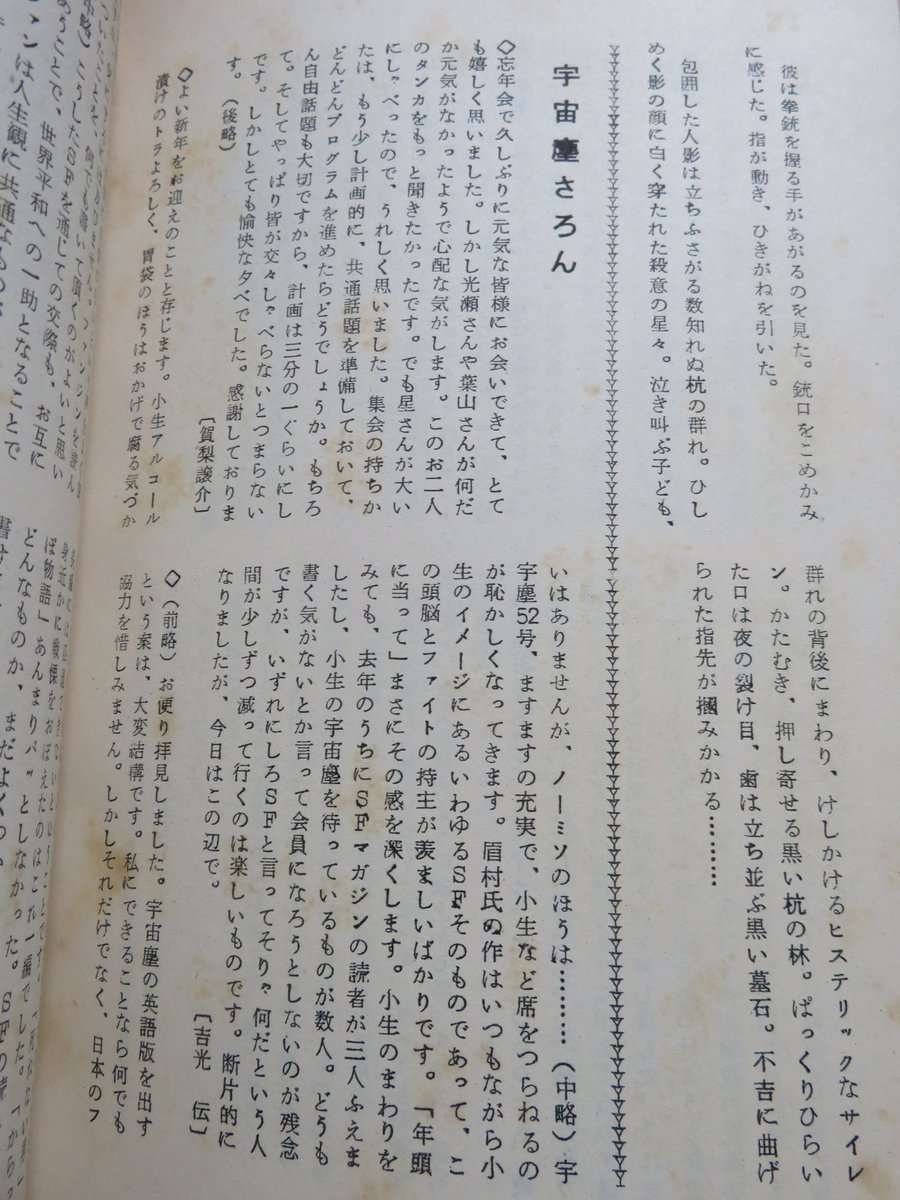 彼は拳銃を握る手があがるのを見た。銃口をこめかみ
に感じた。指が動き、ひきがねを引いた。
包囲した人影は立ちふさがる数知れぬ杭の群れ。ひし
めく影の顔に白く穿たれた殺意の星々。泣き叫ぶ子ども、
群れの背後にまわり、けしかけるヒステリックなサイレ
ン。かたむき、押し寄せる黒い杭の林。ぱっくりひらい
た口は夜の裂け目、歯は立ち並ぶ黒い墓石。不吉に曲げ
られた指先が摑みかかる………
宇宙塵さろん
◇忘年会で久しぶりに元気な皆様にお会いできて、とて
も嬉しく思いました。しかし光瀬さんや葉山さんが何だ
か元気がなかったようで心配な気がします。このお二人
のタンカをもっと聞きたかったです。でも星さんが大い
にしゃべったので、うれしく思いました。集会の持ちか
たは、もう少し計画的に、共通話題を準備しておいて、
どんどんプログラムを進めたらどうでしょうか。もちろ
ん自由話題も大切ですから、計画は三分の一ぐらいにし
て。そしてやっぱり皆が交々しゃべらないとつまらない
です。しかしとても愉快な夕べでした。感謝しておりま
す。（後略）
［賀梨譲介］
◇よい新年をお迎えのことと存じます。小生アルコール
漬けのトラよろしく、胃袋のほうはおかげで腐る気づか
いはありませんが、ノーミソのほうは………（中略）宇
宇塵52号、ますますの充実で、小生など席をつらねるの
が恥かしくなってきます。眉村氏ぬ作はいつもながら小
生のイメージにあるいわゆるSFそのものであって、こ
の頭脳とファイトの持主が羨ましいばかりです。「年頭
に当って」まさにその感を深くします。小生のまわりを
みても、去年のうちにSFマガジンの読者が三人ふえま
したし、小生の宇宙塵を待っているものが数人。どうも
書く気がないとか言って会員になろうとしないのが残念
ですが、いずれにしろSFと言ってそりゃ何だという人
間が少しずつ減って行くのは楽しいものです。断片的に
なりましたが、今日はこの辺で。
［吉光 伝］
◇（前略）お便り拝見しました。宇宙塵の英語版を出す
という案は、大変結構です。私にできることなら何でも
協力を惜しみません。しかしそれだけでなく、日本のフ
こうしたSFを通じての交際も、お互に
うことで、世界平和への一助となることで
ァンは人生観に共通なもの
身近かに戦慄をおぼえたのはこれ一編でした。
ぼ物語」あんまりパッとしなかった。
どんなものか、まだよく